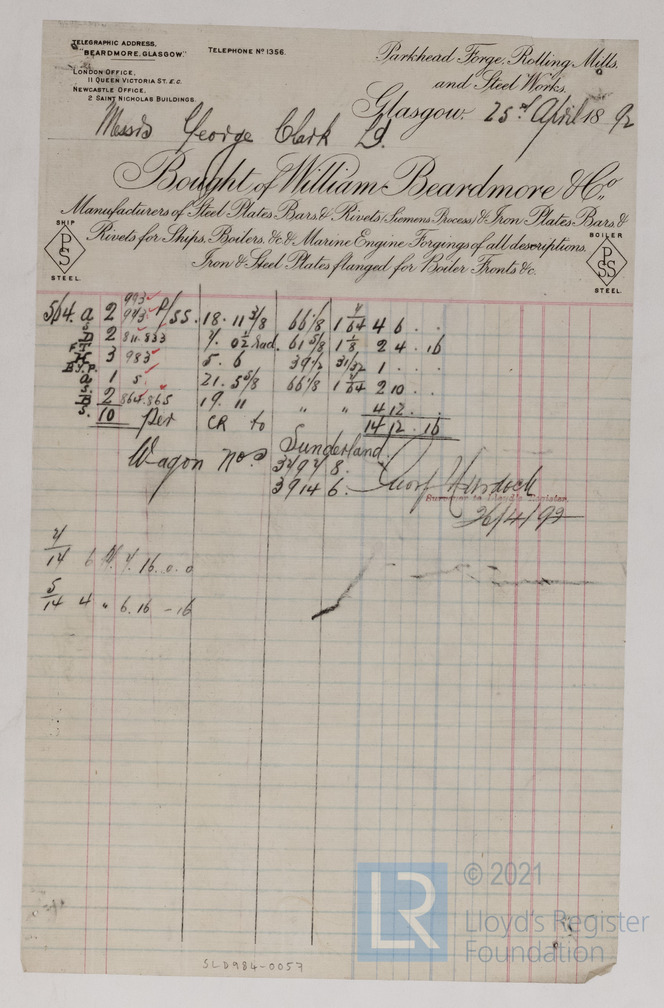 TELEGRAPHIC ADDRESS,
"BEARDMORE, GLASGOW."
TELEPHONE Nº 1356.
LONDON OFFICE,
11 QUEEN VICTORIA ST. E.C.
NEWCASTLE OFFICE,
2 SAINT NICHOLAS BUILDINGS.
Parkhead Forge, Rolling Mills,
and Steel Works,
Glasgow. 25th April 18 92
Messrs George Clark Ld.
Bought of William Beardmore & Co.
Manufacturers of Steel Plates Bars & Rivets (Siemens Process) & Iron Plates Bars &
Rivets for Ships, Boilers, &c & Marine Engine Forgings of all descriptions.
Iron & Steel Plates flanged for Boiler Fronts &c.
SHIP
PS
STEEL.
BOILER
PSS
STEEL.
993
514. a 2 943 P/SS 18. 11 3/8 66 1/8 1 7/64 4 6 . .
2 811.833 7. 02 1/2 rad. 61 5/8 1 1/8 2 4 . 16
3 983 5. 6 39 1/2 31/32 1 . . .
1 5 21. 5 5/8 66 1/8 1 7/64 2 10 . .
2 865.865 19. 11 " " 4 12 . .
10 per CR to 14 12 . 16
Sunderland.
Wagon nos 32928.
39146.
Murdoch
Surveyor to Lloyd's Register.
26/4/92
7/14 6 7. 16. 0. 0
5/14 4 " 6. 16 - 16
SLD984-0057
LR
© 2021
Lloyd's Register
Foundation